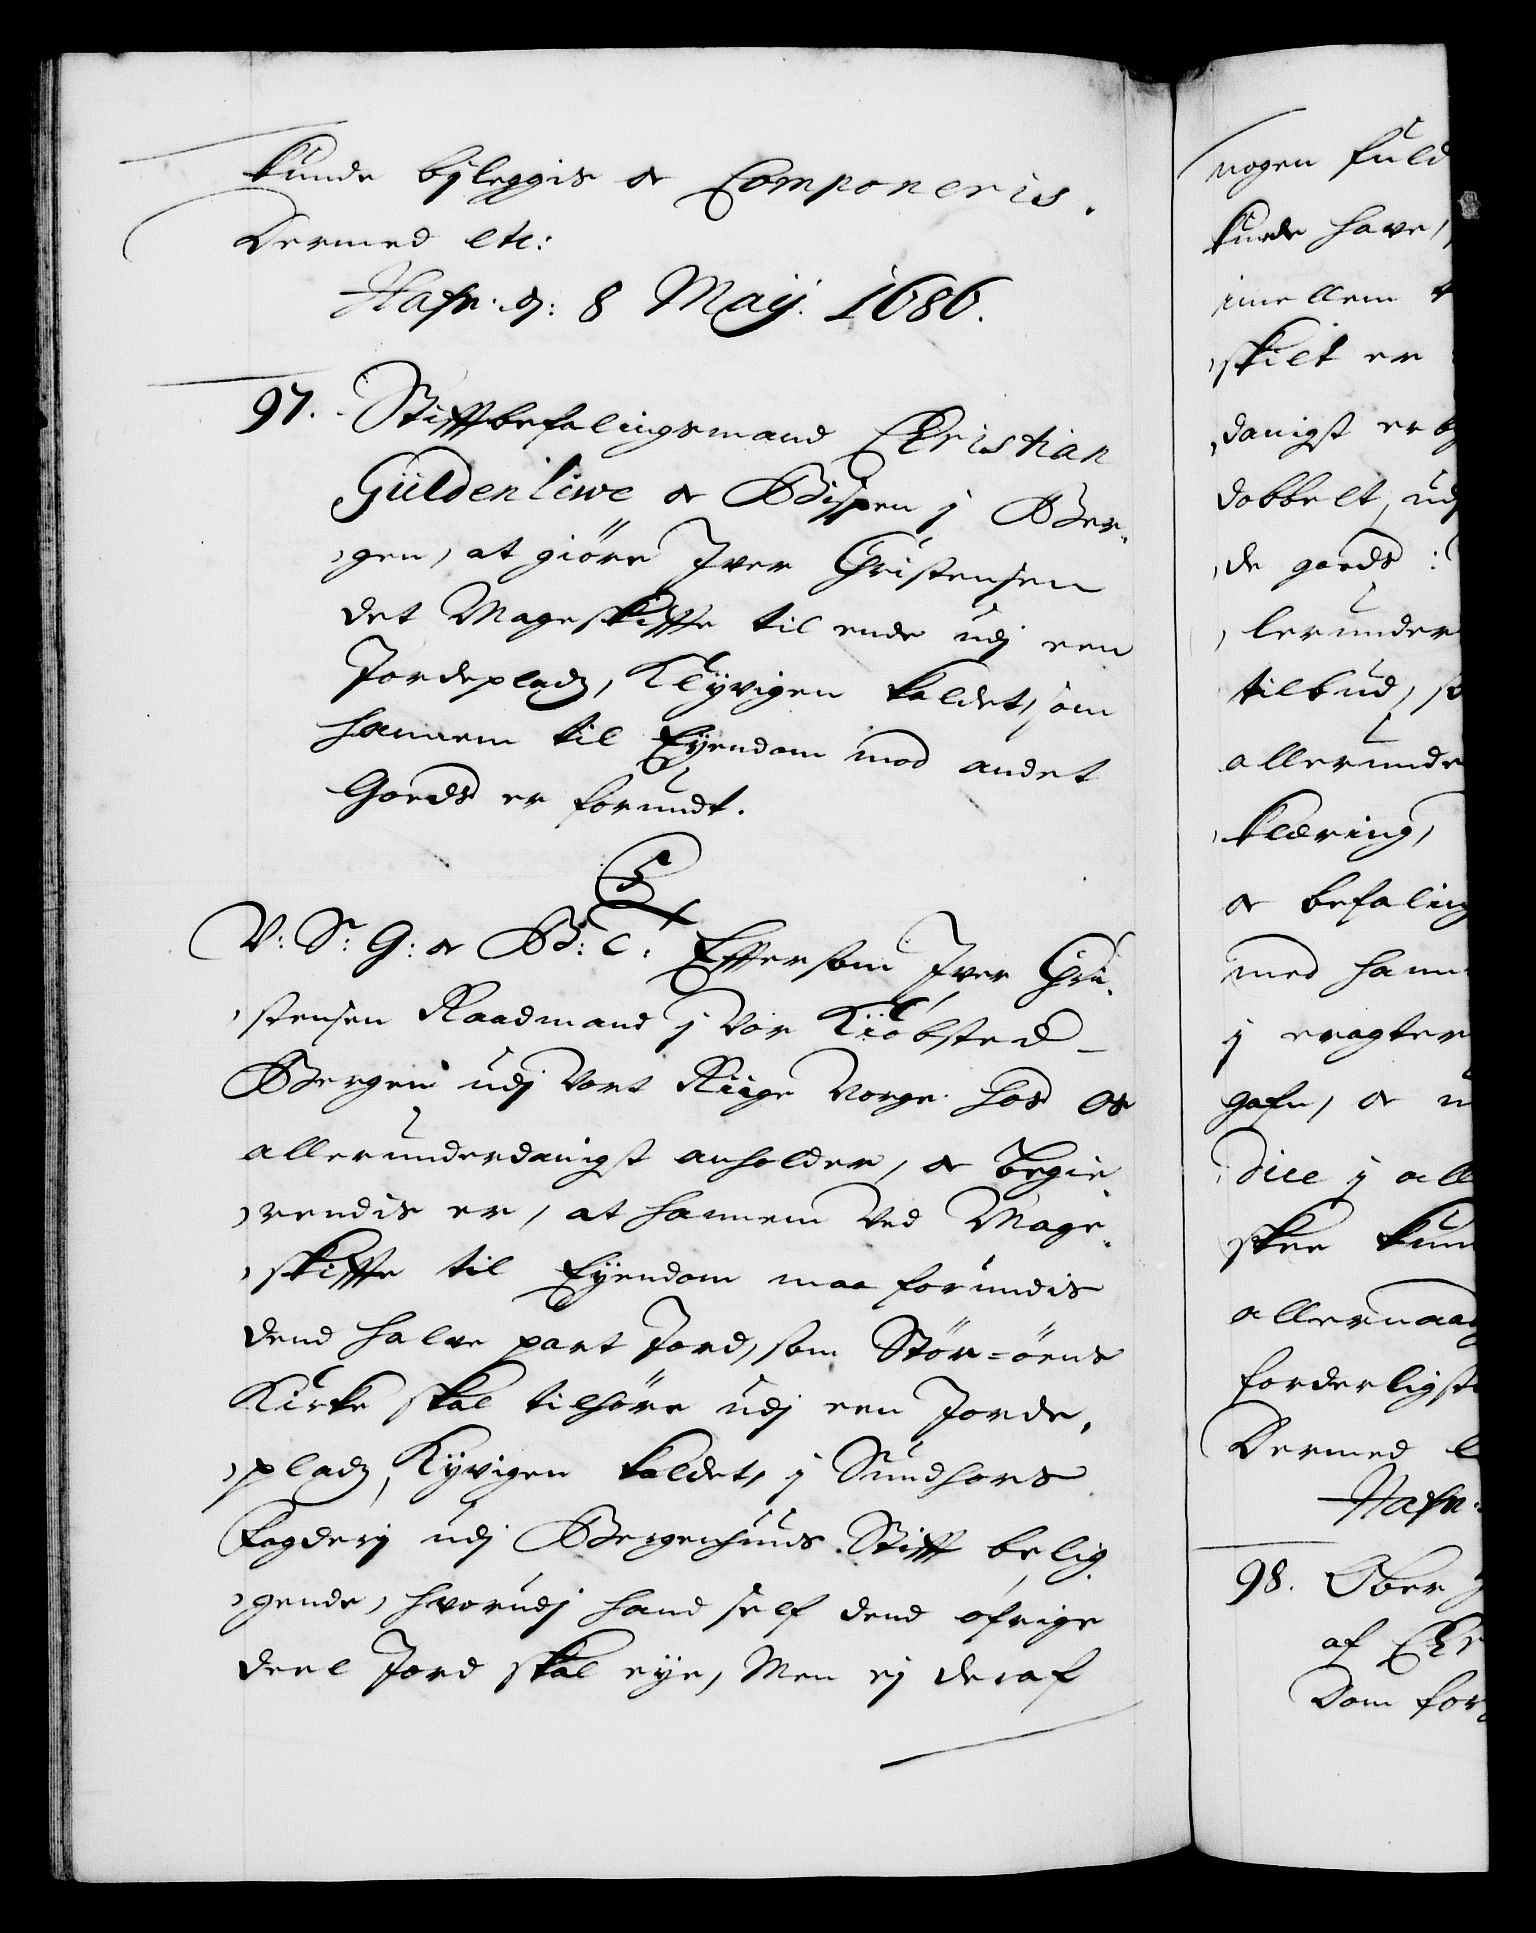 kunde byleggis oc Componeris.
Dermed etc:
Hafn: d: 8 Maij. 1686.
97. Stiftbefalingsmand Christian
Güldenlewe oc Bispen j Ber-
gen, at giöre Iver Christensen
det Mageskiffte til ende udj een
Jordeplads, Kleyvigen kaldet, som
hannem til Eyendom mod andet
Goeds er forundt.
C5
V: S: G: oc B: C: Eftersom Iver Chri-
stensen Raadmand j Vor Kiöbsted
Bergen udj Vort Riige Norge hos Os
allerunderdanigst anholder, oc begie-
rendis er, at hannem Ved Mage-
skiffte til Eyendom maa forundis
dend halve part Jord, som Stör-öens
Kirke skal tilhöre udj een Jorde-
plads, Kyvigen kaldet, j Sundhors
Fogderj udj Bergenhuus Stift belig-
gende, hvorudj hand self dend öfrige
deel Jord skal eye, Men ej deraf
nogen fuld
kunde have,
imellem
skilt er
danigst erby
dobbelt, udj
de goeds:
lerunder
tilbud, so
allerunde
klæring,
oc befaling
med hann
j eragter
hafve, oc
dice j all
skee kun
allernaad
forderligst
Dermed
Hafn:
98. Ober
af Chr
Dom for